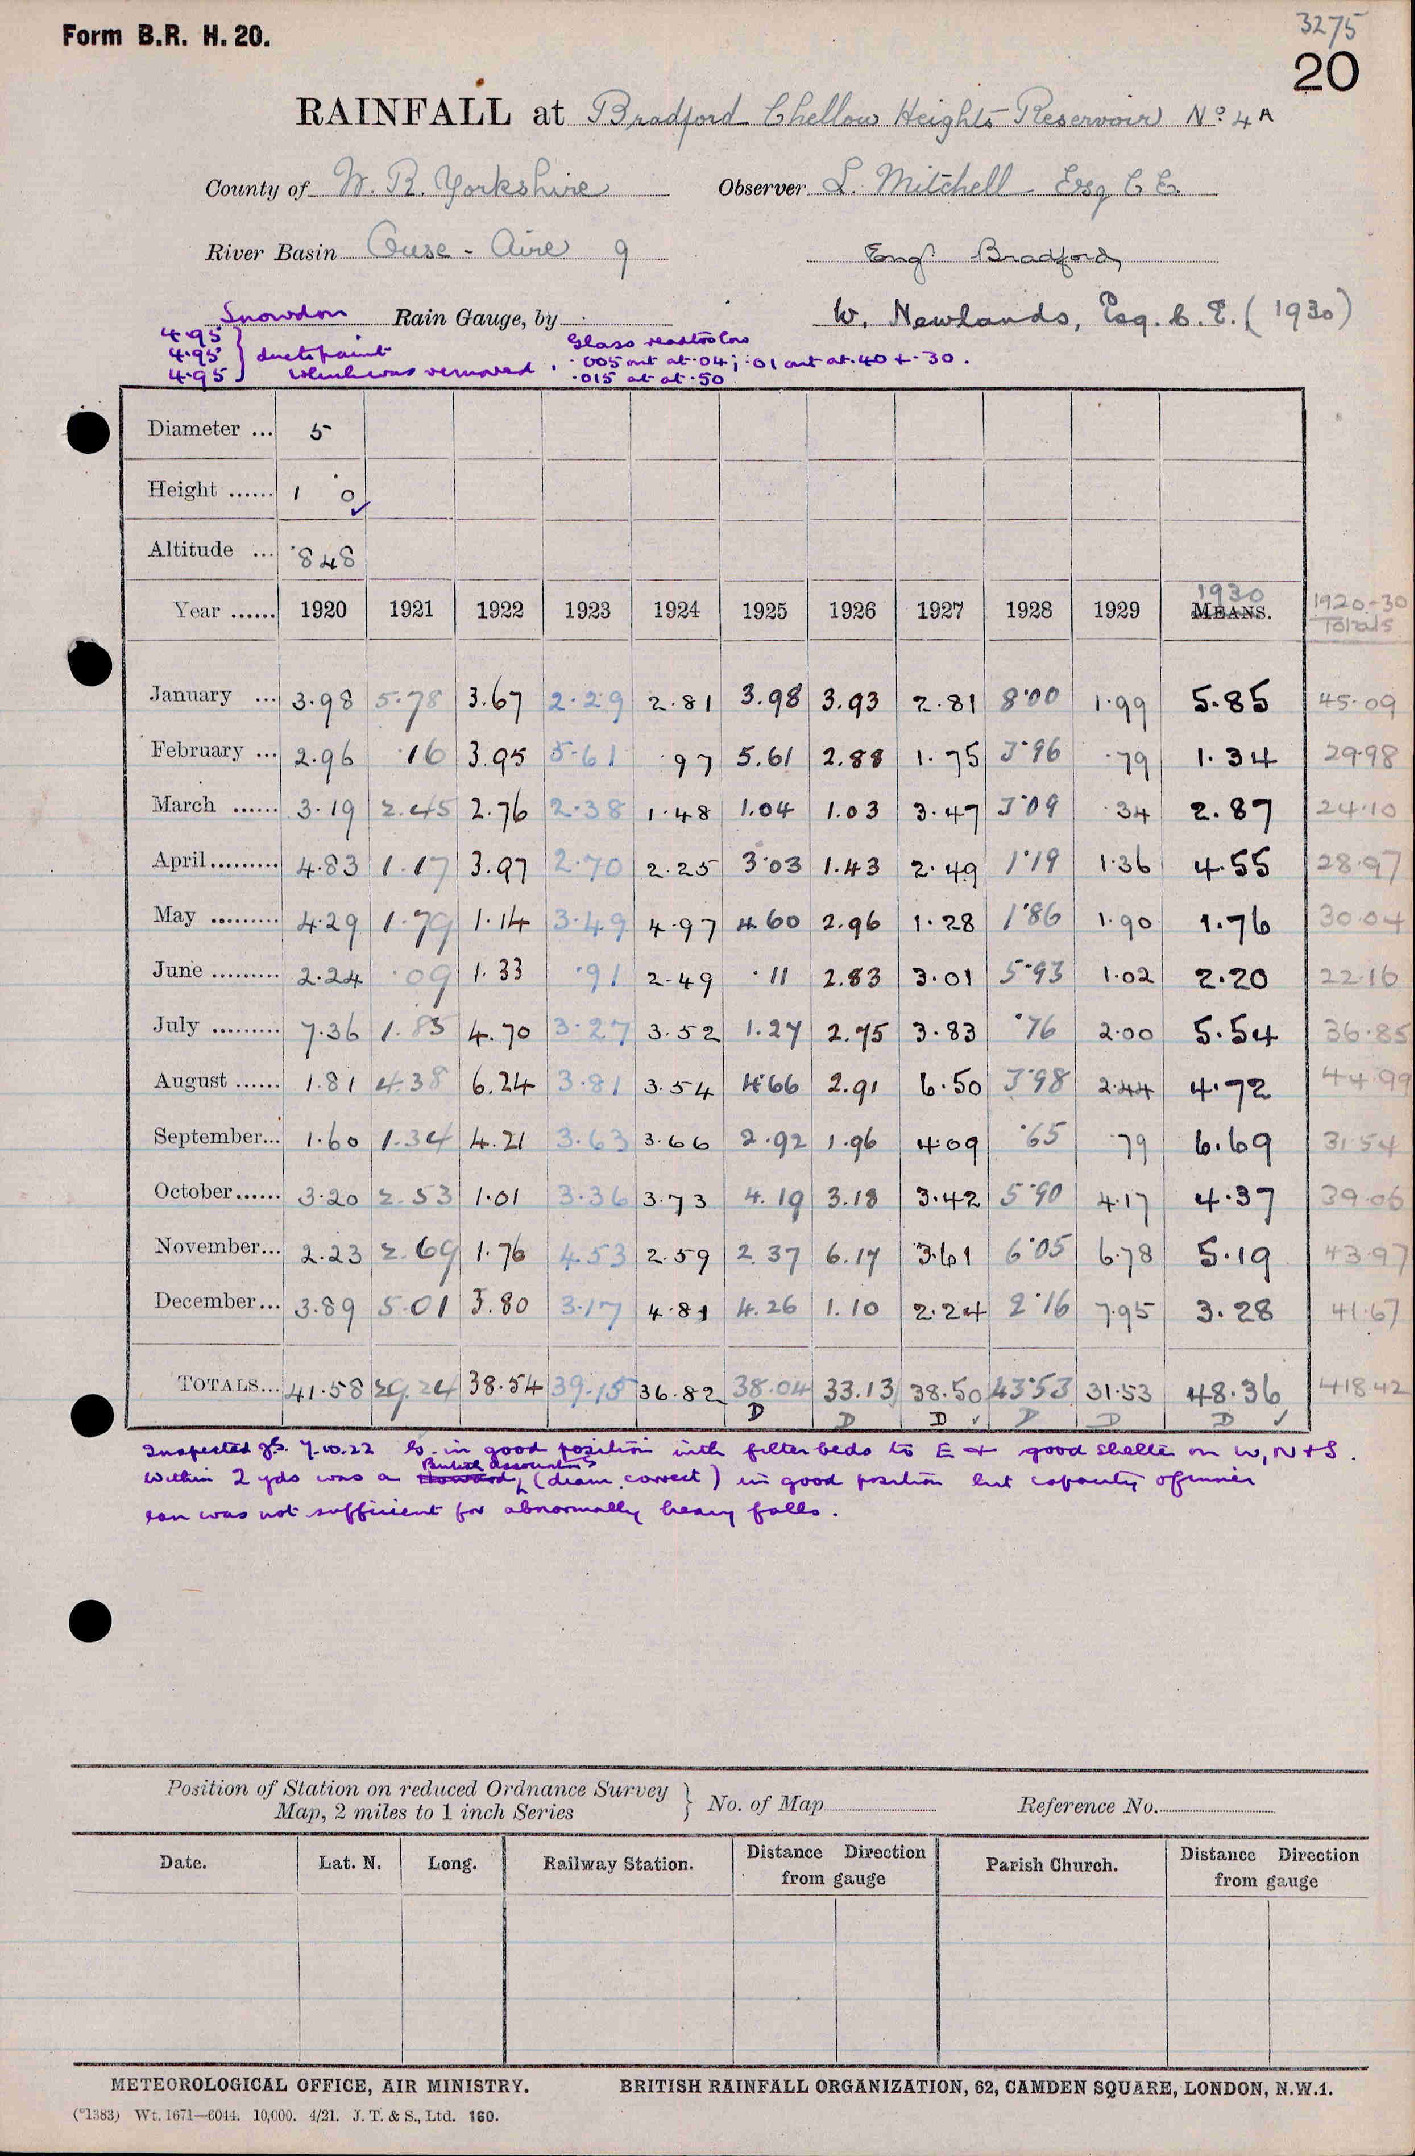 3275
Form B.R. H. 20.
20
RAINFALL at Bradford Chellow Heights Reservoir No 4A
County of W. R. Yorkshire Observer L. Mitchell Esq C E.
River Basin Ouse - Aire 9 Engr Bradford
Snowdon Rain Gauge, by W. Newlands, Esq. C. E. (1930)
4.95
4.95 } due to paint
4.95 which was removed.
Glass read too low
.005 out at .04; .01 out at .40 + .30.
.015 at at .50
Diameter ... 5
Height ...... 1 0 ✓
Altitude ... 848
Year ...... 1920 1921 1922 1923 1924 1925 1926 1927 1928 1929 1930 MEANS. 1920-30 Totals
January ... 3.98 5.78 3.67 2.29 2.81 3.98 3.93 2.81 8.00 1.99 5.85 45.09
February ... 2.96 .16 3.95 5.61 .97 5.61 2.88 1.75 3.96 .79 1.34 29.98
March ...... 3.19 2.45 2.76 2.38 1.48 1.04 1.03 3.47 3.09 .34 2.87 24.10
April ......... 4.83 1.17 3.97 2.70 2.25 3.03 1.43 2.49 1.19 1.36 4.55 28.97
May ......... 4.29 1.79 1.14 3.49 4.97 4.60 2.96 1.28 1.86 1.90 1.76 30.04
June ......... 2.24 .09 1.33 .91 2.49 .11 2.83 3.01 5.93 1.02 2.20 22.16
July ......... 7.36 1.85 4.70 3.27 3.52 1.27 2.75 3.83 .76 2.00 5.54 36.85
August ...... 1.81 4.38 6.24 3.81 3.54 4.66 2.91 6.50 3.98 2.44 4.72 44.99
September... 1.60 1.34 4.21 3.63 3.66 2.92 1.96 4.09 .65 .79 6.69 31.54
October...... 3.20 2.53 1.01 3.36 3.73 4.19 3.18 3.42 5.90 4.17 4.37 39.06
November... 2.23 2.69 1.76 4.53 2.59 2.37 6.17 3.61 6.05 6.78 5.19 43.97
December... 3.89 5.01 3.80 3.17 4.81 4.26 1.10 2.24 2.16 7.95 3.28 41.67
TOTALS... 41.58 29.24 38.54 39.15 36.82 38.04 33.13 38.50 43.53 31.53 48.36 418.42
D D D ✓ D D D ✓
Inspected 7.10.22 G. in good position with filter beds to E + good shelter on W, N + S.
British Association's
Within 2 yds was a Howard, (diam. correct) in good position but capacity of inner
can was not sufficient for abnormally heavy falls.
Position of Station on reduced Ordnance Survey
Map, 2 miles to 1 inch Series } No. of Map Reference No.
Date. Lat. N. Long. Railway Station. Distance Direction from gauge Parish Church. Distance Direction from gauge
METEOROLOGICAL OFFICE, AIR MINISTRY. BRITISH RAINFALL ORGANIZATION, 62, CAMDEN SQUARE, LONDON, N.W.1.
(*1383) Wt. 1671—6044. 10,000. 4/21. J. T. & S., Ltd. 160.